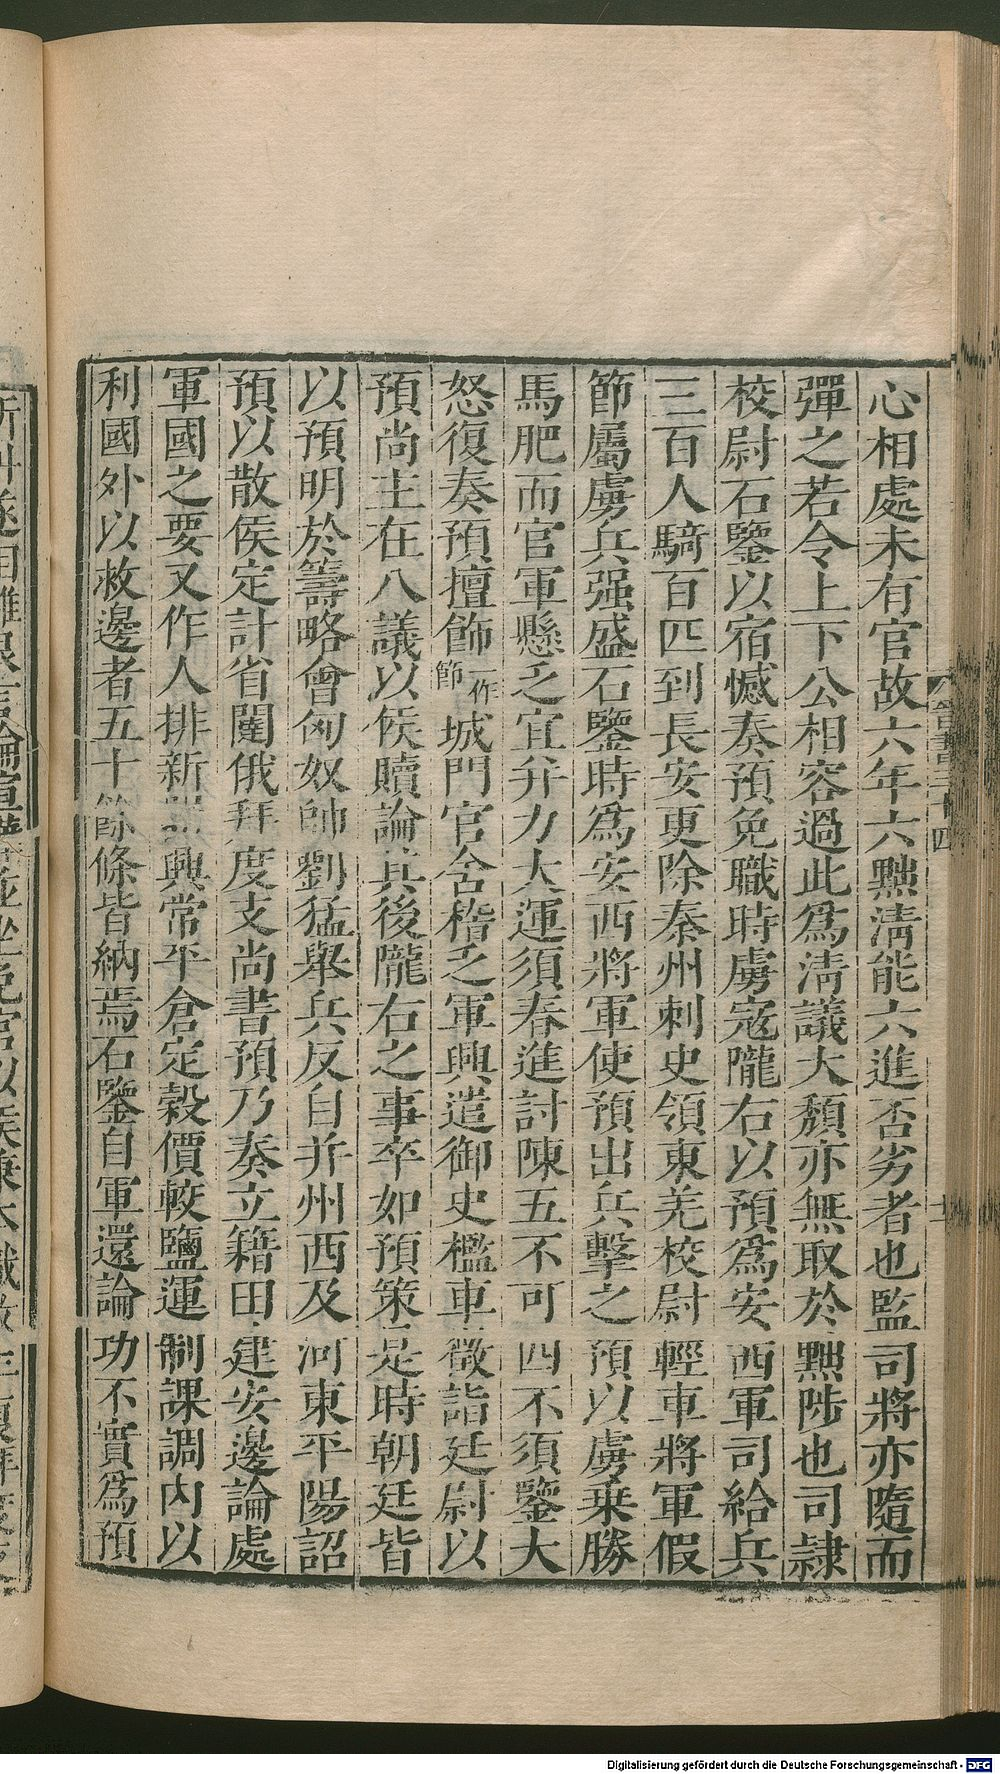 心相處未有官故六年六黜清能六進否劣者也監司將亦隨而
彈之若令上下公相容過此爲清議大頹亦無取於黜陟也司隷
校尉石鑒以宿憾奏預免職時虜寇隴右以預爲安西軍司給兵
三百人騎百匹到長安更除秦州刺史領東羌校尉輕車將軍假
節屬虜兵强盛石鑒時爲安西將軍使預出兵擊之預以虜乗勝
馬肥而官軍懸乏宜并力大運須春進討陳五不可四不須鑒大
怒復奏預擅飾一作節城門官舍稽乏軍興遣御史檻車徵詣廷尉以
預尚主在八議以侯贖論其後隴右之事卒如預策是時朝廷皆
以預明於籌略會匈奴帥劉猛舉兵反自并州西及河東平陽詔
預以散侯定計省闥俄拜度支尚書預乃奏立籍田建安邊論處
軍國之要又作人排新器興常平倉定穀價較鹽運制課調内以
利國外以救邊者五十餘條皆納焉石鑒自軍還論功不實爲預
晉書三十四
Digitalisierung gefördert durch die Deutsche Forschungsgemeinschaft - DFG